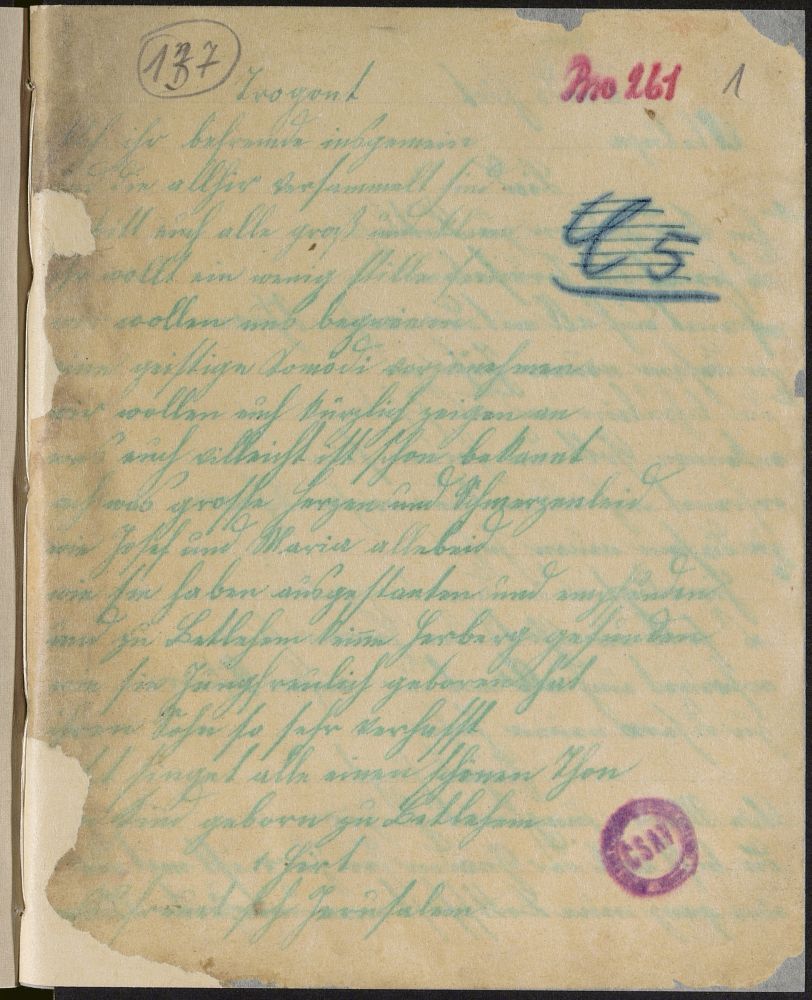 137
Bro 261
1
Trogont
ihr befreunde insgemein
die allhir versammelt sind
bitt euch alle groß und klein
wollt ein wenig stille sein
25
wollen uns begwemen
eine geistige Comödi vorzunehmen
wir wollen euch kürzlich zeigen an
euch villeicht ist schon bekannt
ach was grosse Herzen und Schmerzenleid
wie Josef und Maria allebeid
wie sie haben ausgestanten und empfunden
und zu Betlehem keine Herberg gefunden
wie sie Jungfreulich geboren hat
ihren Sohn so sehr verhasst
singet alle einen schönen Thon
Kind geborn zu Betlehem
Hirt
Jerusalem
ČSAV